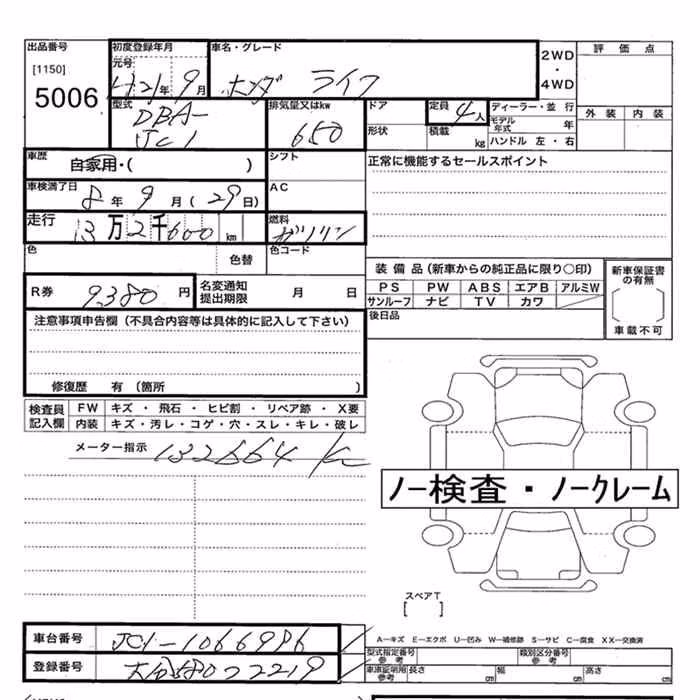 出品番号
[1150]
5006
初度登録年月
元号
H21年 9月
車名・グレード
ホンダ ライフ
2WD
・
4WD
評価点
外装 内装
型式
DBA-
JC1
排気量又はkw
650
ドア
形状
定員
4人
積載
kg
ディーラー・並行
モデル年式 年
ハンドル 左・右
車歴
自家用・( )
シフト
正常に機能するセールスポイント
車検満了日
8年 9月(29日)
AC
走行
13万2千600km
燃料
ガソリン
色
色替
色コード
装備品(新車からの純正品に限り○印)
PS PW ABS エアB アルミW
サンルーフ ナビ TV カワ
新車保証書の有無
[ ]
車載不可
R券
9380円
名変通知
提出期限
月 日
後日品
注意事項申告欄(不具合内容等は具体的に記入して下さい)
修復歴 有(箇所 )
検査員
記入欄
FW キズ・飛石・ヒビ割・リペア跡・X要
内装 キズ・汚レ・コゲ・穴・スレ・キレ・破レ
メーター指示
132664 K
ノー検査・ノークレーム
スペアT
[ ]
車台番号
JC1-1066986
登録番号
大分580 2219
A-キズ E-エクボ U-凹み W-補修跡 S-サビ C-腐食 XX-交換済
型式指定番号
参考
類別区分番号
参考
車庫証明用
参考
長さ cm 幅 cm 高さ cm